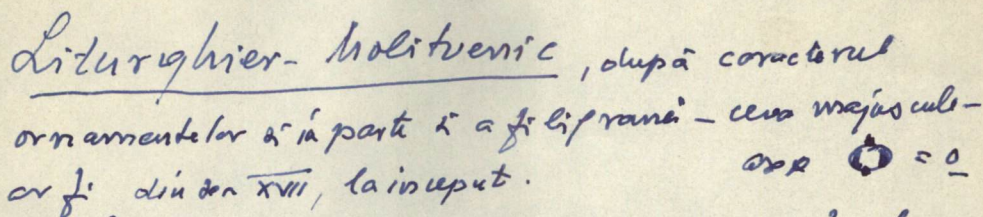 Liturghier-Molitvenic, după caracterul
ornamentelor și în parte și a filigranei – ceva majuscule –
ar fi din sec XVII, la început.
= o